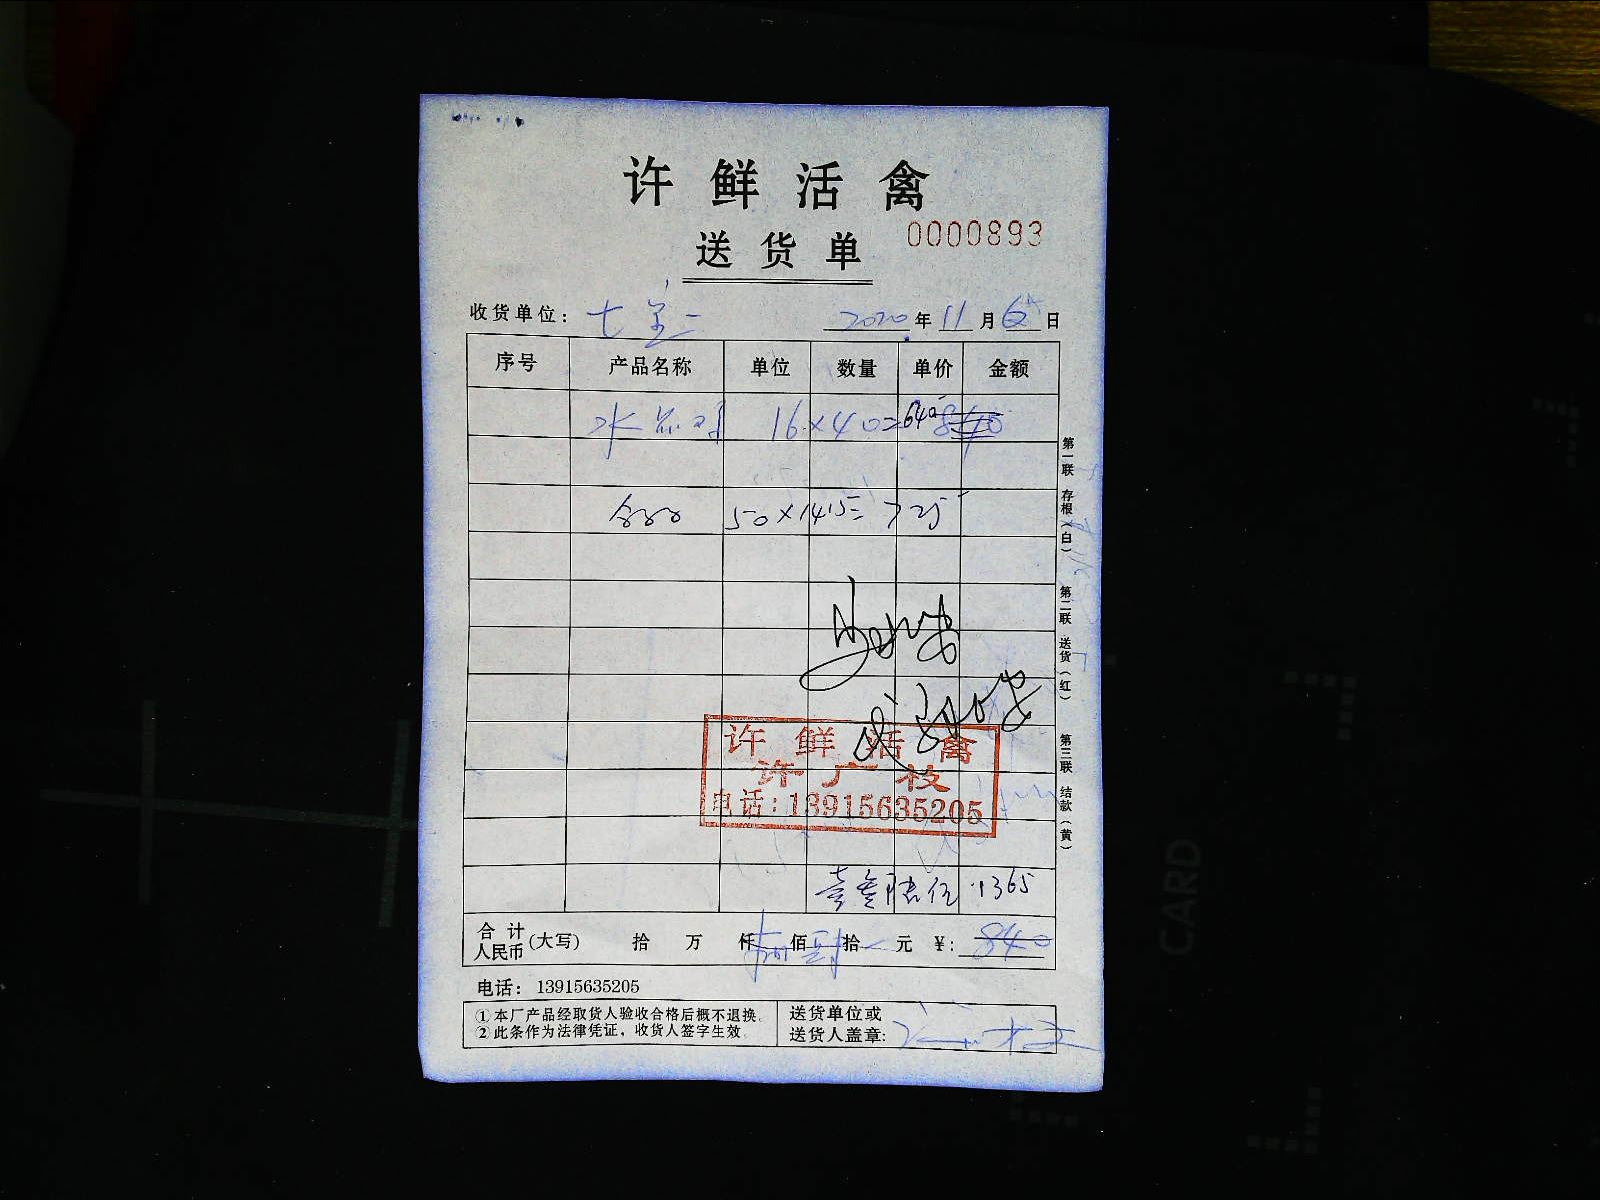 许鲜活禽
送货单
0000893
收货单位: 七
2020年11月6日
序号 产品名称 单位 数量 单价 金额
水 16×40=640 840
50×14.5=725
许鲜活禽
许广枝
电话:13915635205
1365
合计人民币(大写) 拾 万 仟 佰 拾 元 ¥: 840
电话: 13915635205
①本厂产品经取货人验收合格后概不退换.
②此条作为法律凭证, 收货人签字生效
送货单位或
送货人盖章:
第一联 存根(白)
第二联 送货(红)
第三联 结款(黄)
CARD